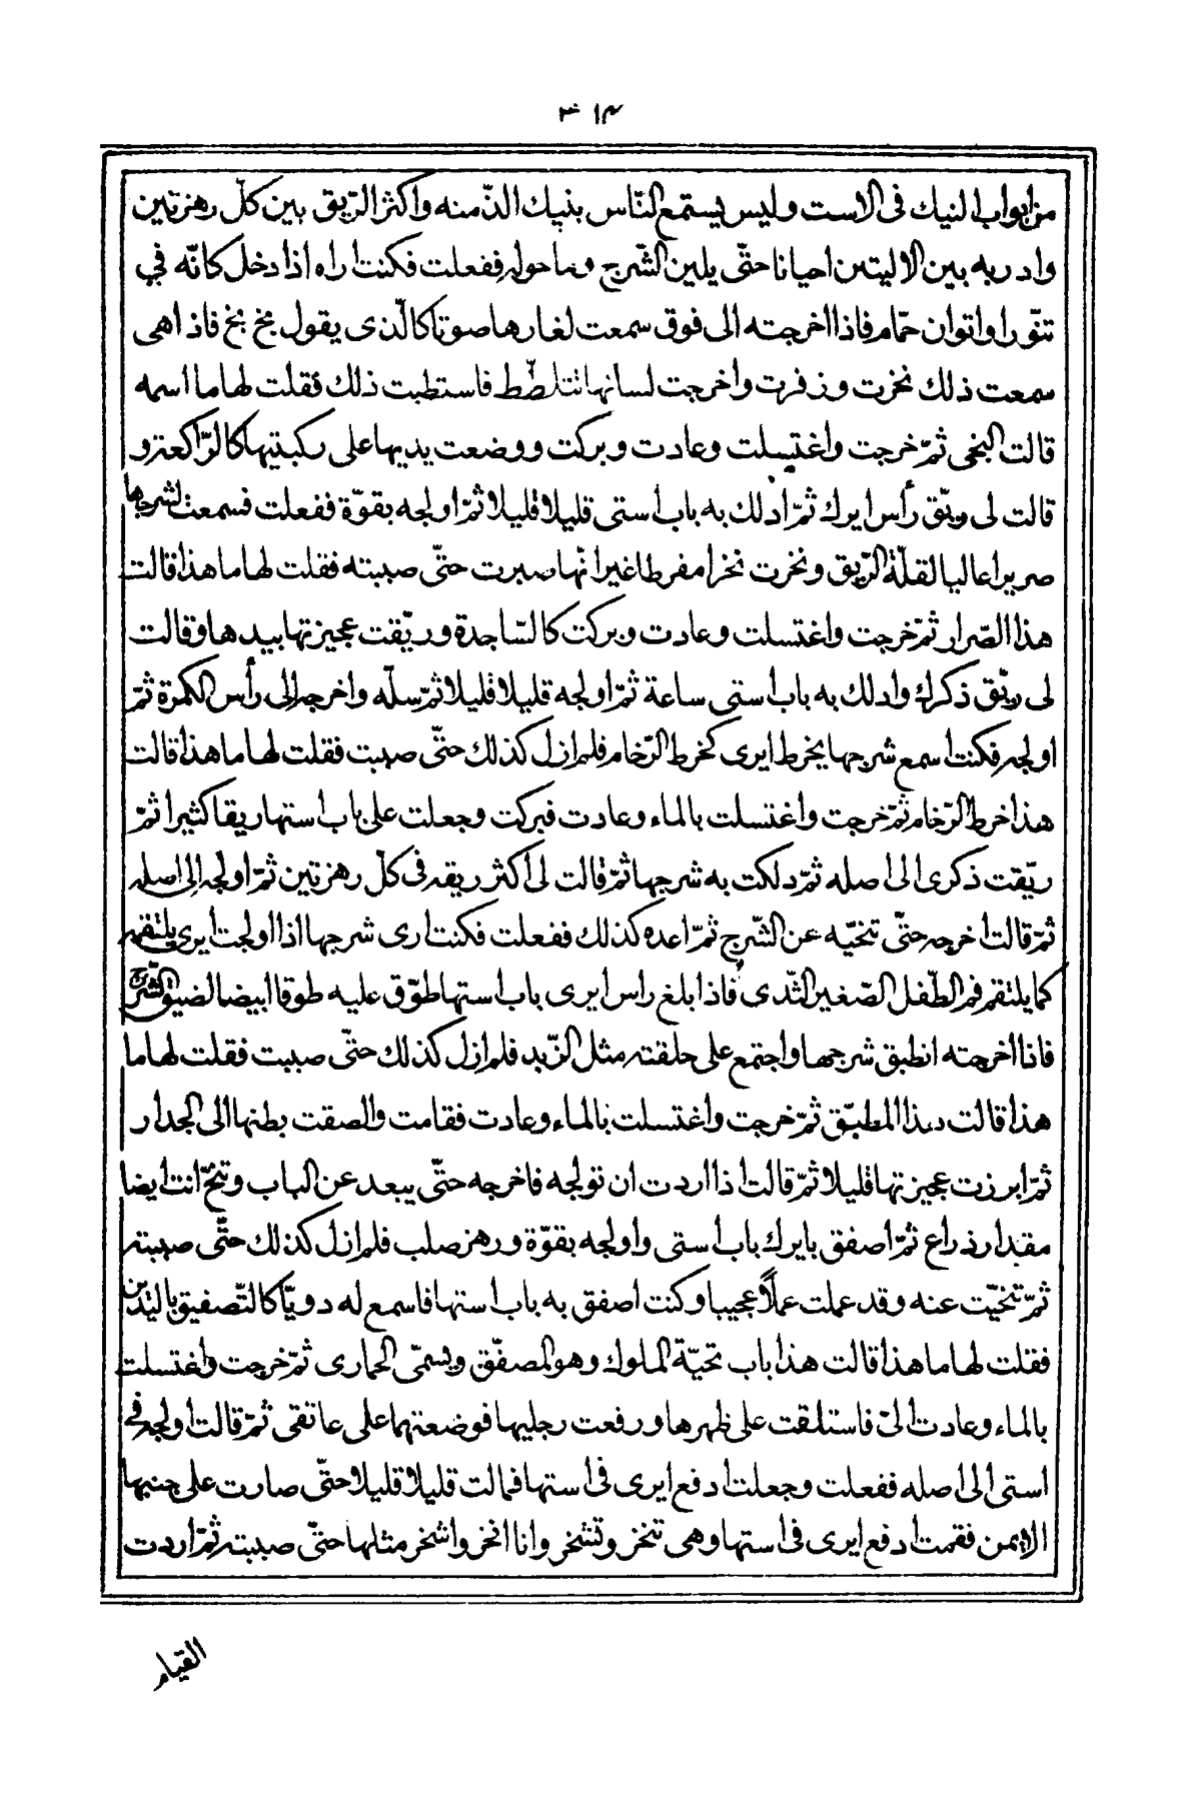 ٣١٤
من ابواب النيك فى الاست وليس يستمع الناس بنيك الذّ منه واكثر الرّيق بين كلّ رهزتين
وادر به بين الاليتين احيانا حتّى يلين الشّرج وما حوله ففعلت فكنت اراه اذا دخل كانّه في
تنّور او اتوان حمّام فاذا اخرجته الى فوق سمعت لغارها صوتا كالّذى يقول بخ بخ فاذا هى
سمعت ذلك نخرت وزفرت واخرجت لسانها تتلضّط فاستطبت ذلك فقلت لها ما اسمه
قالت البخى ثمّ خرجت واغتسلت وعادت وبركت ووضعت يديها على ركبتيها كالرّاكعة و
قالت لى ريّق رأس ايرك ثمّ ادلك به باب استى قليلا قليلا ثمّ اولجه بقوّة ففعلت فسمعت لشرجها
صريرا عاليا لقلّة الرّيق ونخرت نخرا مفرطا غير انّها صبرت حتّى صببته فقلت لها ما هذا قالت
هذا الصّرار ثمّ خرجت واغتسلت وعادت وبركت كالسّاجدة وريّقت عجيزتها بيدها وقالت
لى ريّق ذكرك وادلك به باب استى ساعة ثمّ اولجه قليلا قليلا ثمّ سلّه واخرجه الى رأس الكمرة ثمّ
اولجه فكنت اسمع شرجها يخرط ايرى كخرط الرّخام فلم ازل كذلك حتّى صببت فقلت لها ما هذا قالت
هذا خرط الرّخام ثمّ خرجت واغتسلت بالماء وعادت فبركت وجعلت على باب استها ريقا كثيرا ثمّ
ريّقت ذكرى الى اصله ثمّ دلكت به شرجها ثمّ قالت لى اكثر ريقه فى كلّ رهزتين ثمّ اولجه الى اصله
ثمّ قالت اخرجه حتّى تنحّيه عن الشّرج ثمّ اعده كذلك ففعلت فكنت ارى شرجها اذا اولجت ايرى يلتقمه
كما يلتقم فم الطّفل الصّغير الثّدى فاذا بلغ راس ايرى باب استها طوّق عليه طوقا ابيضا لضيق الشّرج
فانا اخرجته انطبق شرجها واجتمع على حلقته مثل الزّبد فلم ازل كذلك حتّى صببت فقلت لها ما
هذا قالت هذا المطبّق ثمّ خرجت واغتسلت بالماء وعادت فقامت والصقت بطنها الى الجدار
ثمّ ابرزت عجيزتها قليلا ثمّ قالت اذا اردت ان تولجه فاخرجه حتّى يبعد عن الباب وتنحّ انت ايضا
مقدار ذراع ثمّ اصفق بايرك باب استى واولجه بقوّة ورهز صلب فلم ازل كذلك حتّى صببته
ثمّ تنحّيت عنه وقد عملت عملاً عجيبا وكنت اصفق به باب استها فاسمع له دويّا كالتّصفيق باليدين
فقلت لها ما هذا قالت هذا باب تحيّة الملوك وهو المصفّق ويسمّى الحمارى ثمّ خرجت واغتسلت
بالماء وعادت الىّ فاستلقت على ظهرها ورفعت رجليها فوضعتهما على عاتقى ثمّ قالت اولجه فى
استى الى اصله ففعلت وجعلت ادفع ايرى فى استها فمالت قليلا قليلا حتّى صارت على جنبها
الايمن فقمت ادفع ايرى فى استها وهى تنخر وتشخر وانا انخر واشخر مثلها حتّى صببته ثمّ اردت
القيام